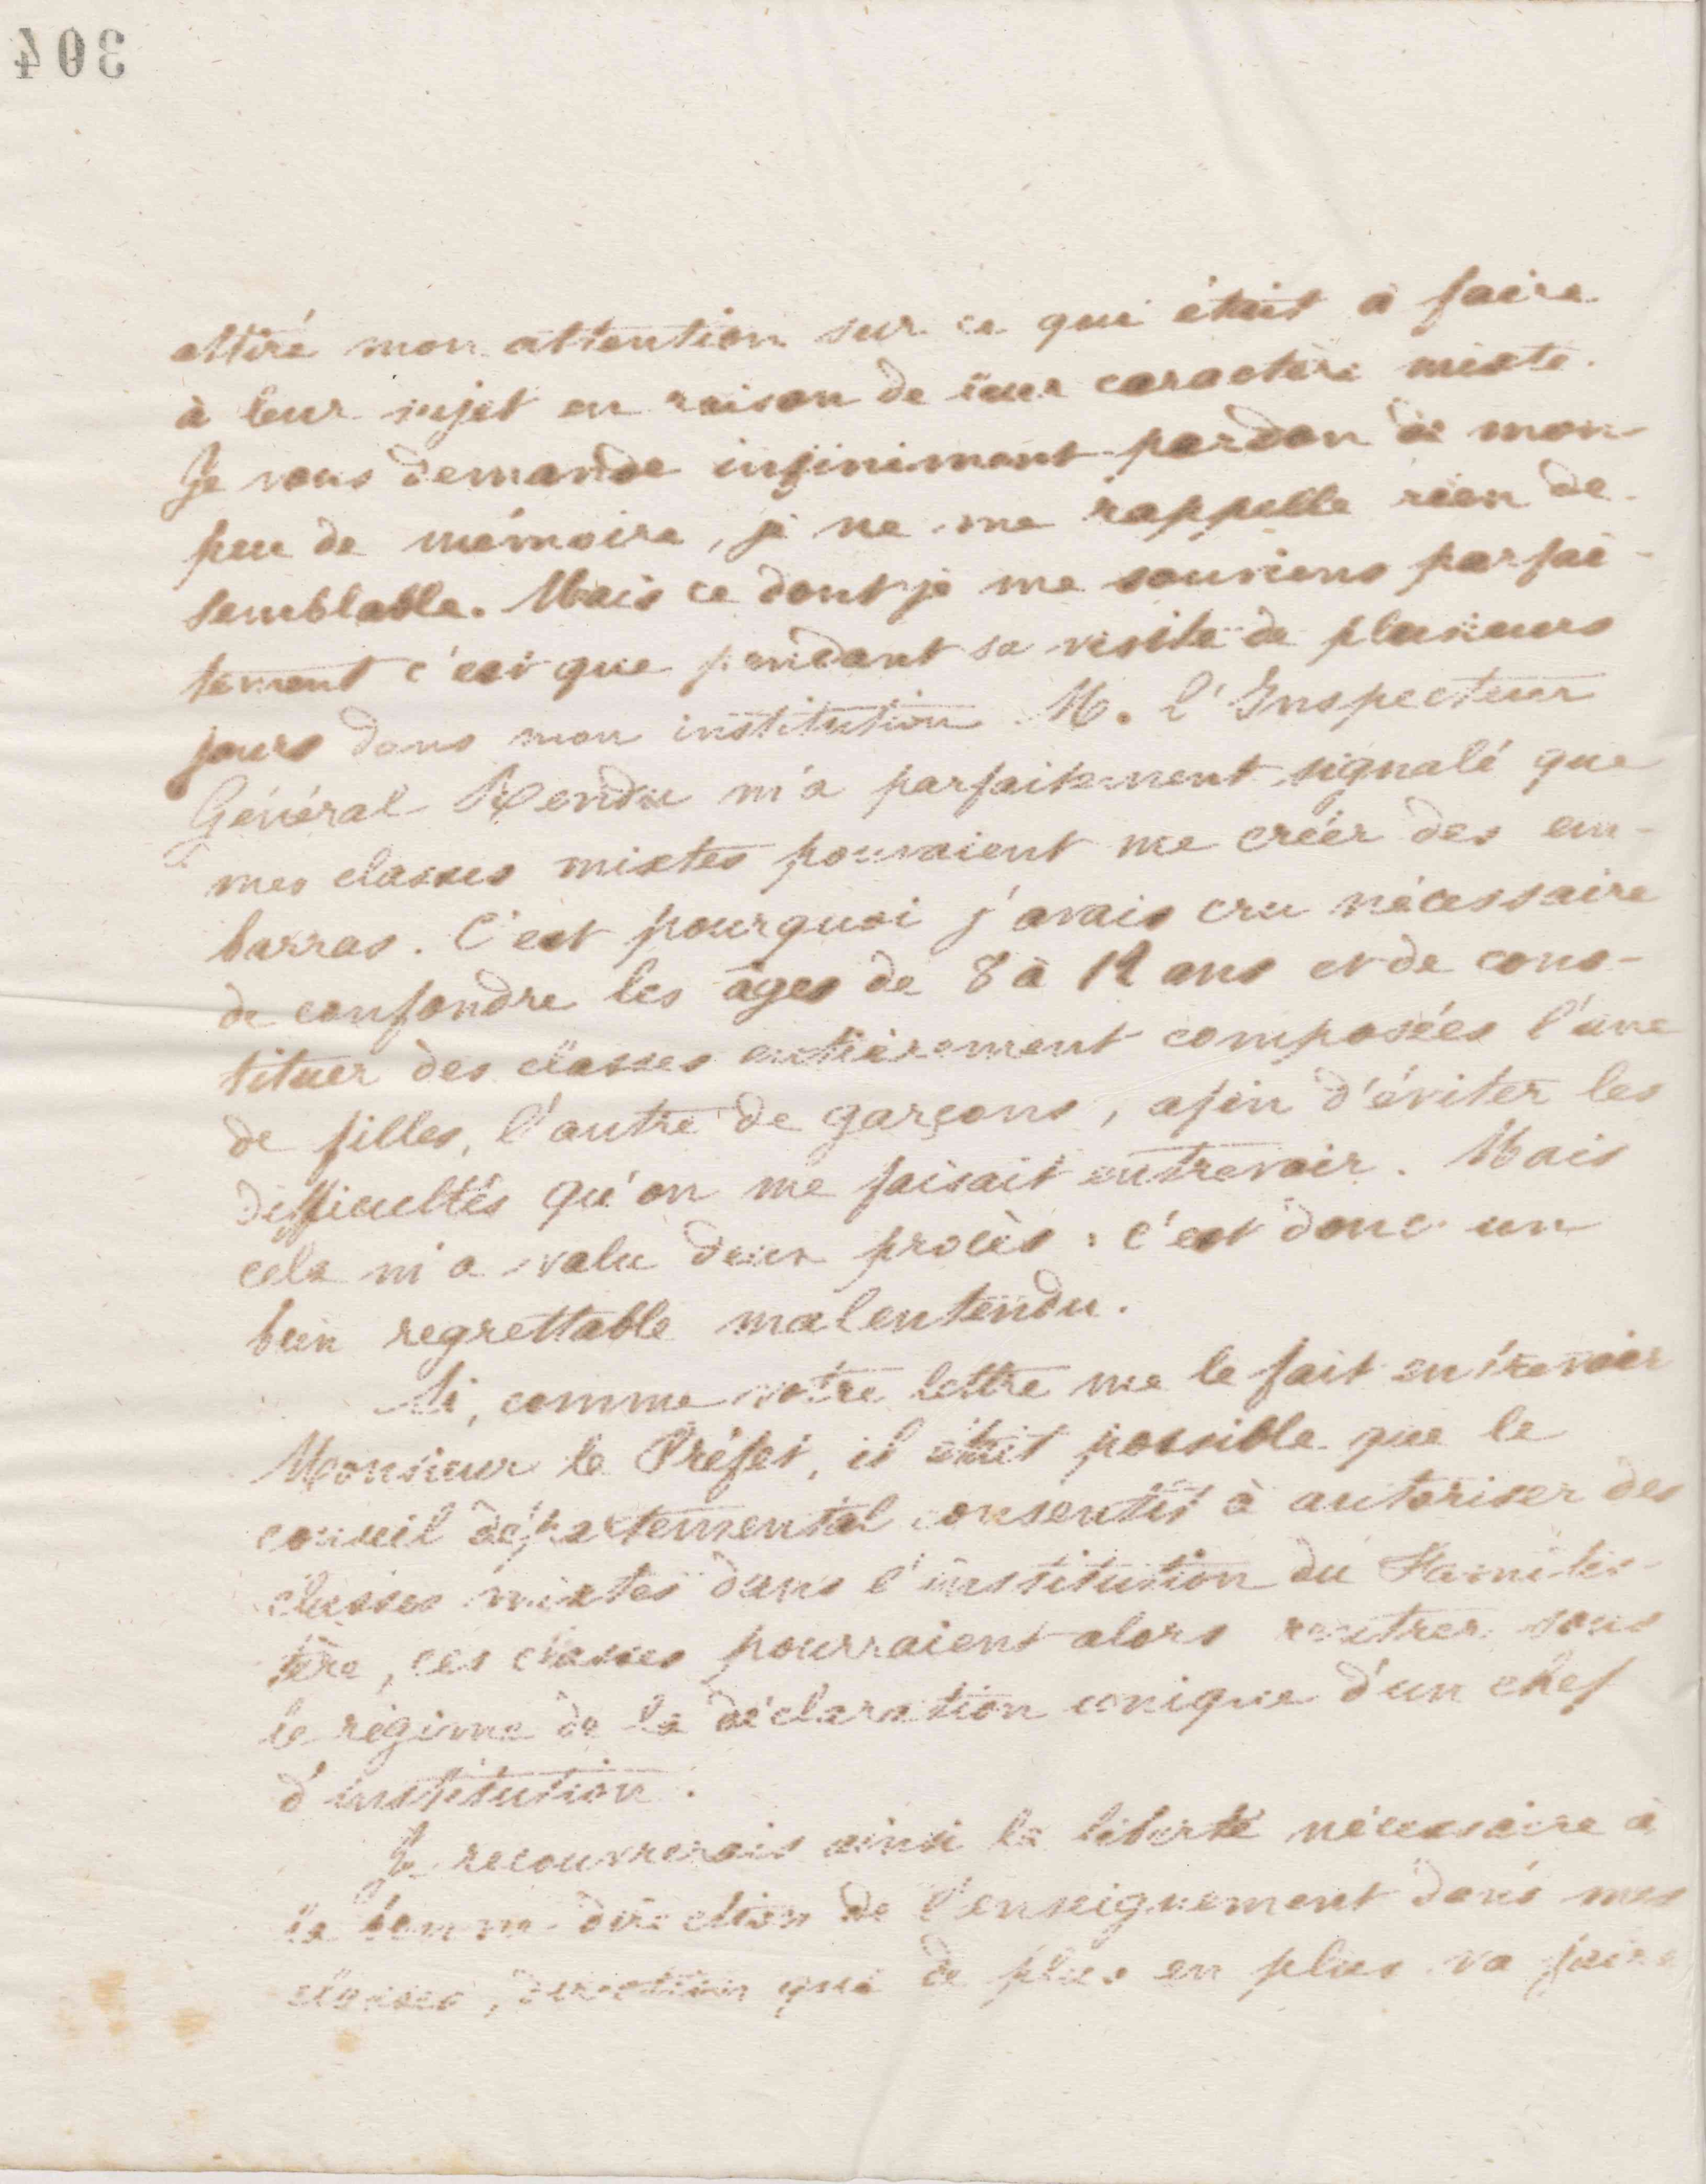 304
attiré mon attention sur ce qui était à faire
à leur sujet en raison de leur caractère mixte.
Je vous demande infiniment pardon de mon
peu de mémoire, je ne me rappelle rien de
semblable. Mais ce dont je me souviens parfai-
tement c'est que pendant sa visite de plusieurs
jours dans mon institution M. l'Inspecteur
Général Rendu m'a parfaitement signalé que
mes classes mixtes pouvaient me créer des em-
barras. C'est pourquoi j'avais cru nécessaire
de confondre les âges de 8 à 12 ans et de cons-
tituer des classes entièrement composées l'une
de filles, l'autre de garçons, afin d'éviter les
difficultés qu'on me faisait entrevoir. Mais
cela m'a valu deux procès : c'est donc un
bien regrettable malentendu.
Si, comme votre lettre me le fait entrevoir
Monsieur le Préfet, il était possible que le
conseil départemental consentît à autoriser des
classes mixtes dans l'institution du Familis-
tère, ces classes pourraient alors rentrer sous
le régime de la déclaration unique d'un chef
d'institution.
Je recouvrerais ainsi la liberté nécessaire à
la bonne direction de l'enseignement dans mes
classes, direction qui de plus en plus va faire